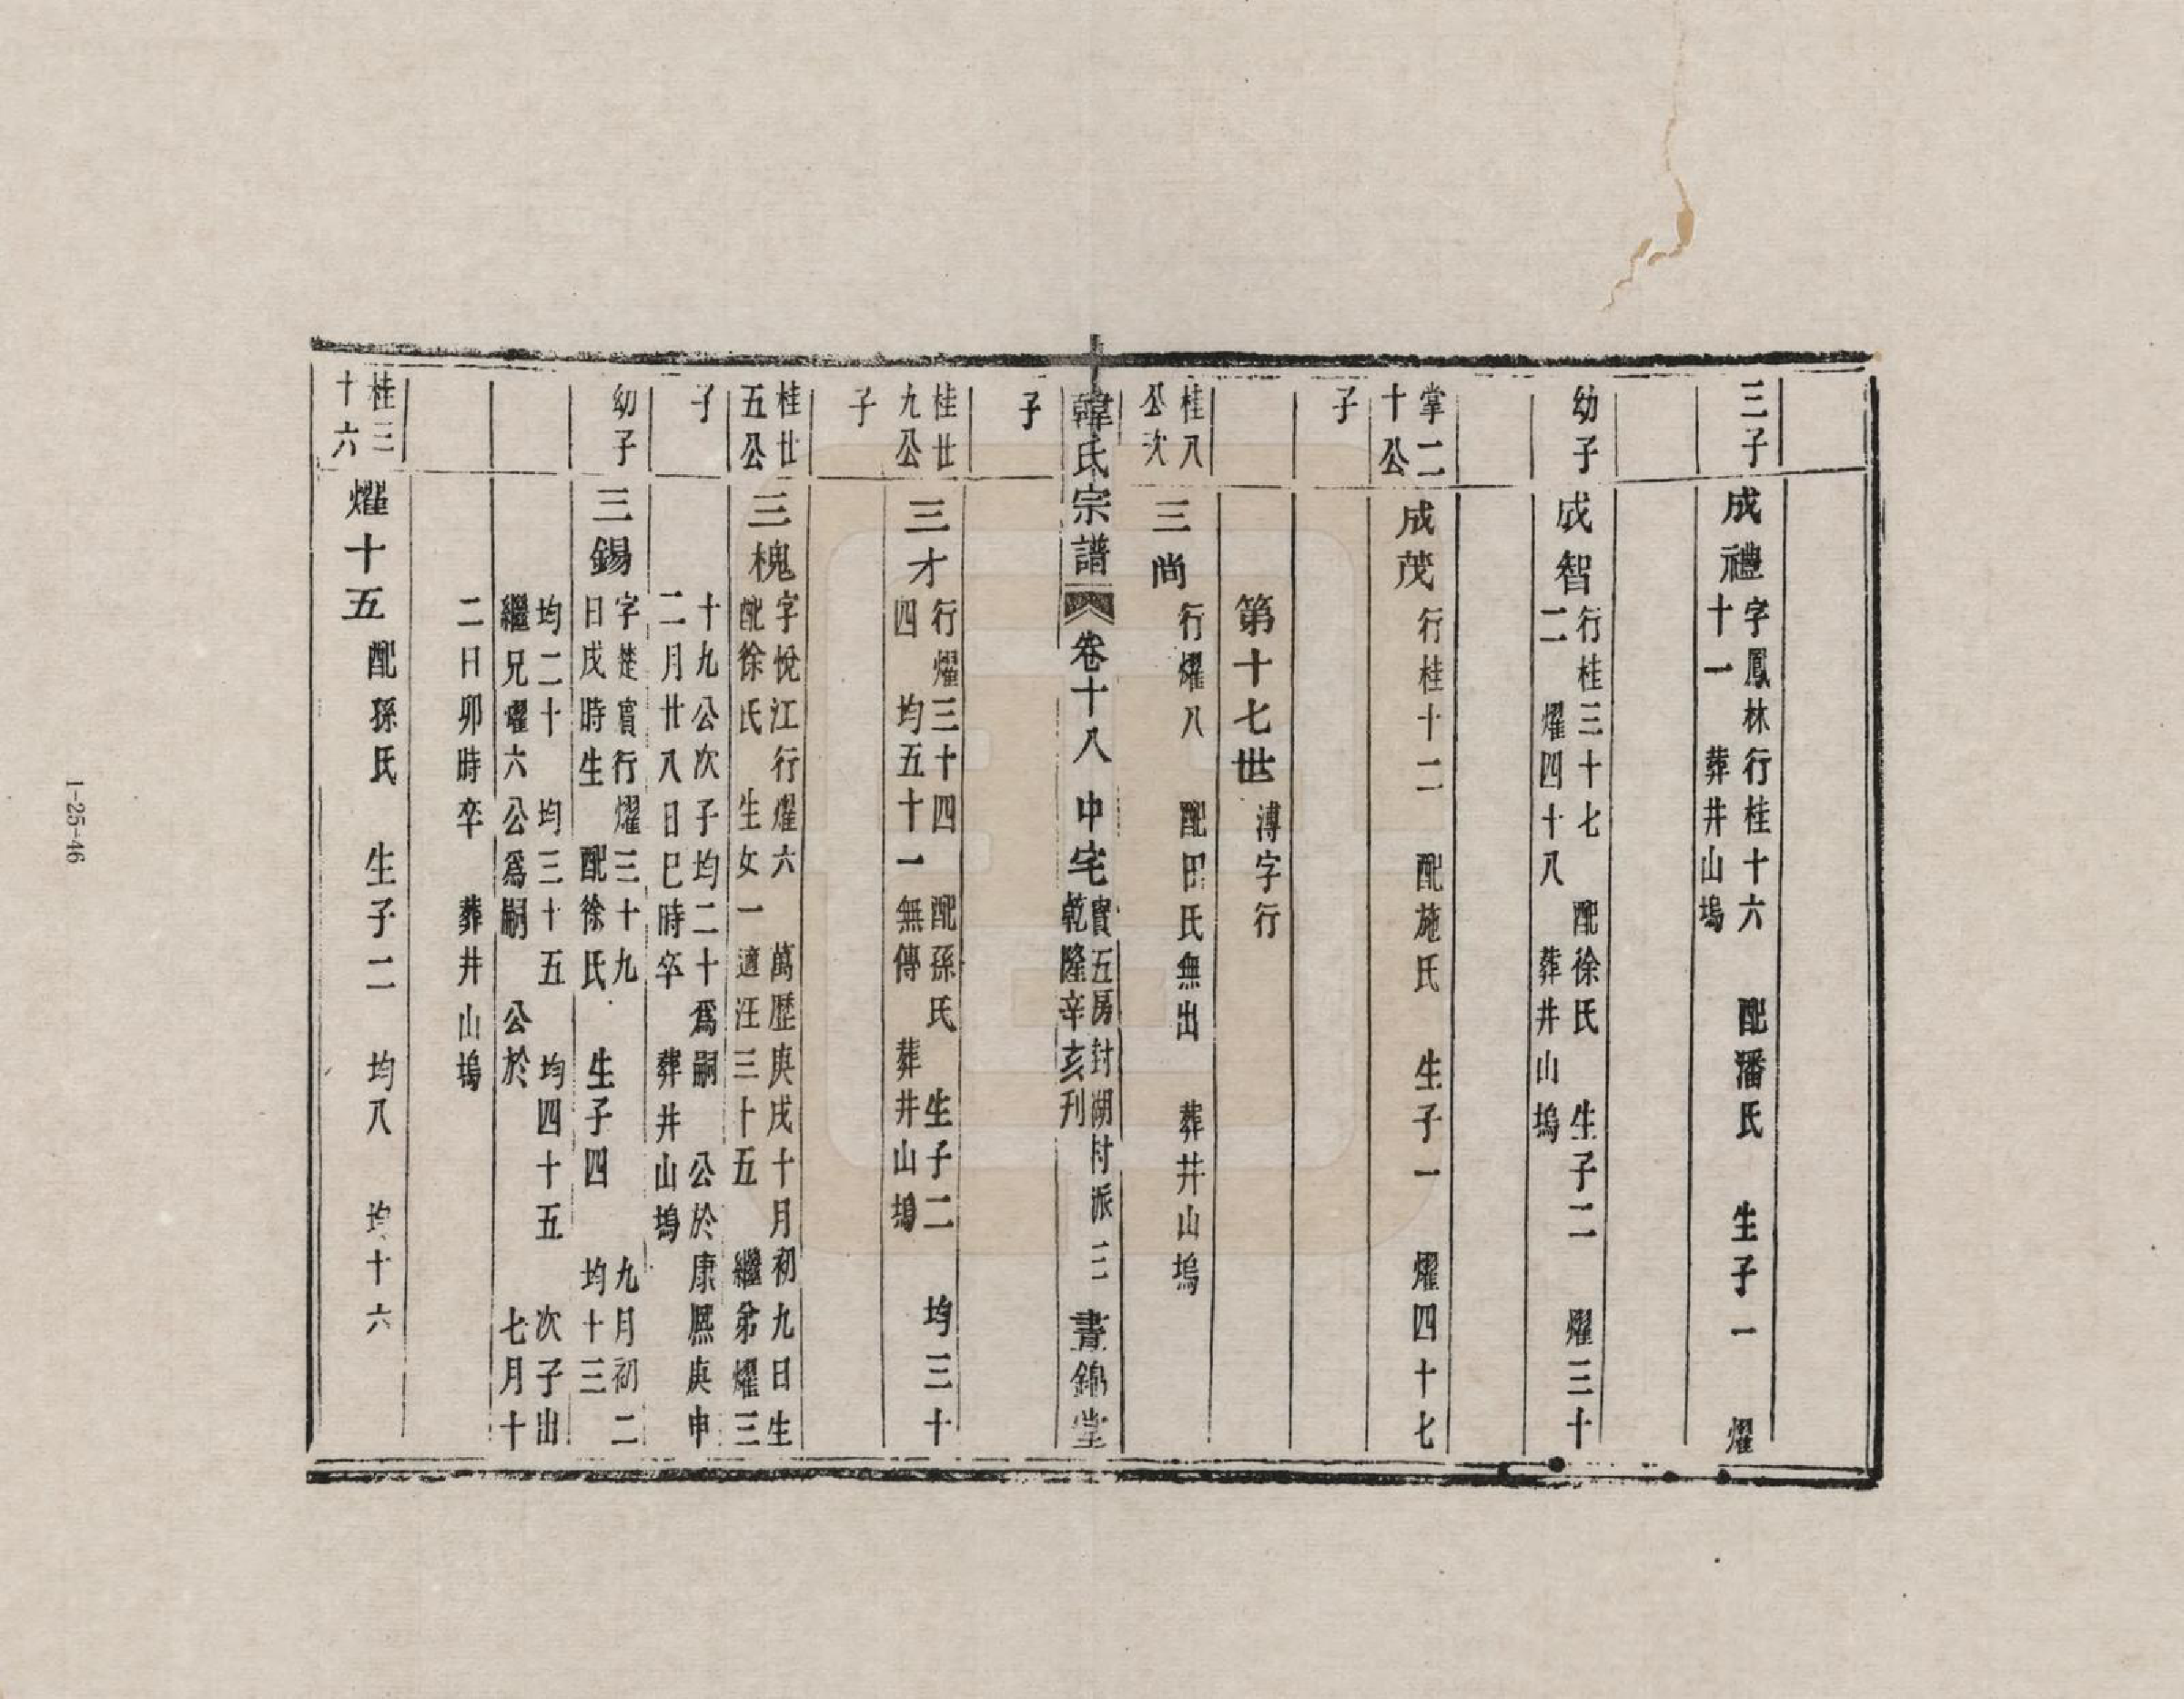 三子
成禮
字鳳林行桂十六　配潘氏　生子一　燿
十一　葬井山塢
幼子
成智
行桂三十七　配徐氏　生子二　燿三十
二　燿四十八　葬井山塢
掌二
十公
子
成茂
行桂十二　配施氏　生子一　燿四十七
第十七世
溥字行
桂八
公次
子
三尚
行燿八　配田氏無出　葬井山塢
韓氏宗譜
卷十八　中宅
實五房封湖村派　三
乾隆辛亥刊
晝錦堂
桂廿
九公
子
三才
行燿三十四　配孫氏　生子二　均三十
四　均五十一無傳　葬井山塢
桂廿
五公
子
三槐
字悅江行燿六　萬歷庚戌十月初九日生
配徐氏　生女一適汪三十五　繼弟燿三
十九公次子均二十爲嗣　公於康熙庚申
二月廿八日巳時卒　葬井山塢
幼子
三錫
字楚賓行燿三十九　九月初二
日戌時生　配徐氏　生子四　均十三
均二十　均三十五　均四十五　次子出
繼兄燿六公爲嗣　公於　七月十
二日卯時卒　葬井山塢
桂三
十六
燿十五
配孫氏　生子二　均八　均十六
1-25-46